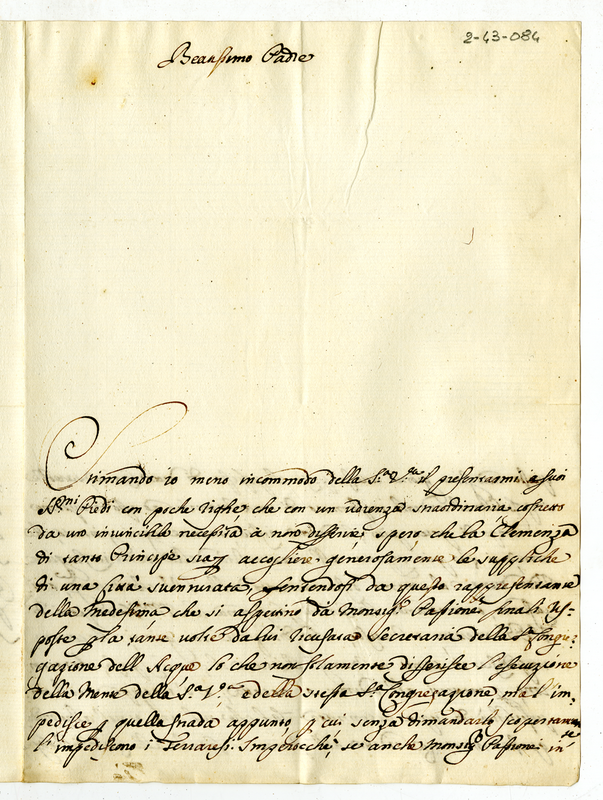 2-43-084
Beatissimo Padre
Stimando io meno incommodo della S.ta V.ra il presentarmi a suoi
S.mi Piedi con poche righe che con un udienza straordinaria costretto
da una invincibile necessità à non differire, spero che la Clemenza
di tanto Principe sia accogliere generosamente le suppliche
di una Città sventurata, sentendosi da questo rappresentante
della Medesima che si aspettino da Monsig.r Passionei finali ris-
poste la tante volte da lui ricusata Secretaria della S.a Congre-
gazione dell Acque lo che non solamente differisce l'esecuzione
della Mente della S.tà V.ra e della stessa S.a Congregazione, ma l'im-
pedisce p quella strada appunto p cui senza dimandarlo scopertamente
l'impediscono i Ferraresi. Imperocchè, se anche Monsig.r Passionei in